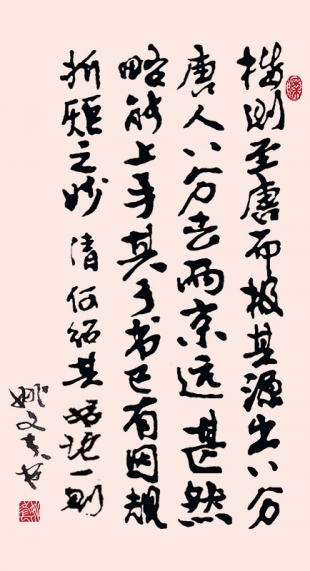 楷则至唐而极其源出八分
唐人八分去两京远甚然
略能上手其于书已有因规
折矩之妙 清 何绍其 一则